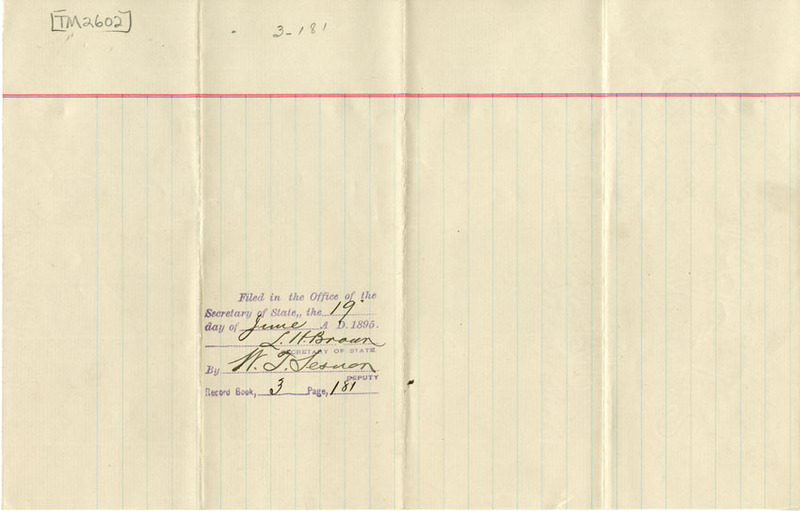 [TM2602]
3-181
Filed in the Office of the
Secretary of State,, the 19
day of June A. D. 1895.
L. H. Brown
SECRETARY OF STATE
By W. T. Sesnon
DEPUTY
Record Book, 3 Page, 181